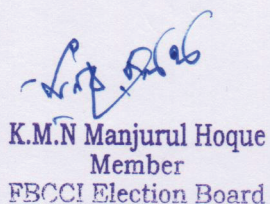 K.M.N Manjurul Hoque
Member
FBCCI Election Board